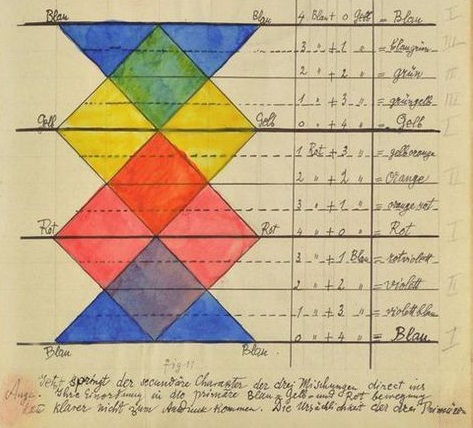 Blau Blau 4 Blau + 0 Gelb = Blau I
3 " + 1 " = blaugrün III
2 " + 2 " = grün II
1 " + 3 " = grüngelb III
Gelb Gelb 0 " + 4 " = Gelb I
1 Rot + 3 " = gelborange
2 " + 2 " = Orange II
3 " + 1 " = orangerot
Rot Rot 4 " + 0 " = Rot I
3 " + 1 Blau = rotviolett
2 " + 2 " = violett II
1 " + 3 " = violettblau
Blau Blau. 0 " + 4 " = Blau I
fig. 11
Jetzt springt der secundäre Character der drei Mischungen direct ins
Auge. Ihre Einordnung in die primäre Blau = Gelb = und Rot bewegung
klarer nicht zum Ausdruck kommen. Die Ursächlichkeit der drei Primären